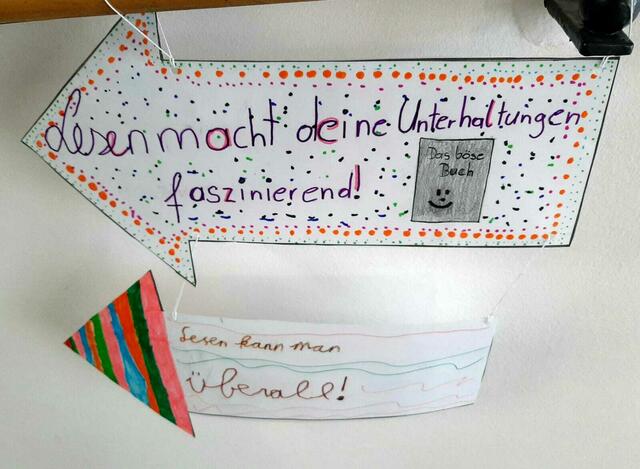 Lesen macht deine Unterhaltungen
faszinierend!
Das böse
Buch
Lesen kann man
überall!